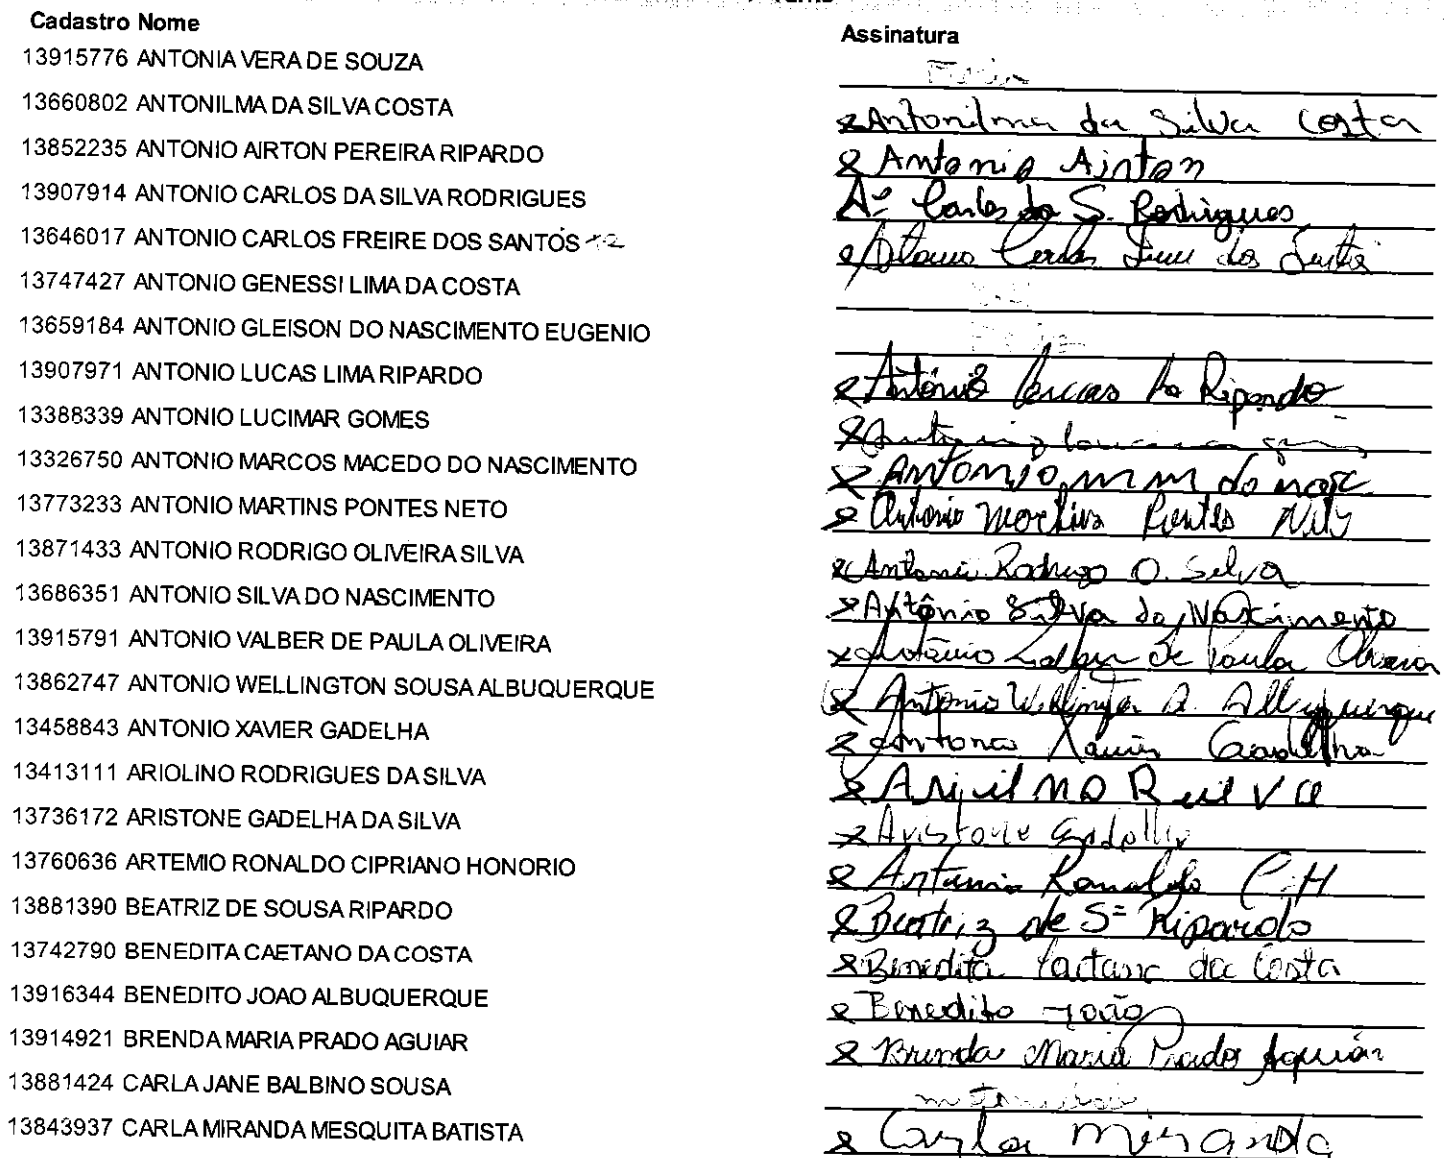 Cadastro Nome Assinatura
13915776 ANTONIA VERA DE SOUZA
13660802 ANTONILMA DA SILVA COSTA Antonilma da Silva Costa
13852235 ANTONIO AIRTON PEREIRA RIPARDO Antonio Airton
13907914 ANTONIO CARLOS DA SILVA RODRIGUES Aº Carlos da S. Rodrigues
13646017 ANTONIO CARLOS FREIRE DOS SANTOS dos
13747427 ANTONIO GENESSI LIMA DA COSTA
13659184 ANTONIO GLEISON DO NASCIMENTO EUGENIO
13907971 ANTONIO LUCAS LIMA RIPARDO Antônio Lucas Ripardo
13388339 ANTONIO LUCIMAR GOMES
13326750 ANTONIO MARCOS MACEDO DO NASCIMENTO Antonio m m do nasc
13773233 ANTONIO MARTINS PONTES NETO Antonio Martins Pontes Neto
13871433 ANTONIO RODRIGO OLIVEIRA SILVA Antonio Rodrigo O. Silva
13686351 ANTONIO SILVA DO NASCIMENTO Antônio Silva do Nascimento
13915791 ANTONIO VALBER DE PAULA OLIVEIRA de Paula Oliveira
13862747 ANTONIO WELLINGTON SOUSA ALBUQUERQUE Antonio Albuquerque
13458843 ANTONIO XAVIER GADELHA Xavier Gadelha
13413111 ARIOLINO RODRIGUES DA SILVA
13736172 ARISTONE GADELHA DA SILVA Aristone
13760636 ARTEMIO RONALDO CIPRIANO HONORIO Ronaldo C.H
13881390 BEATRIZ DE SOUSA RIPARDO Beatriz de Sª Ripardo
13742790 BENEDITA CAETANO DA COSTA Benedita Caetano da Costa
13916344 BENEDITO JOAO ALBUQUERQUE Benedito João
13914921 BRENDA MARIA PRADO AGUIAR Brenda Maria Prado Aguiar
13881424 CARLA JANE BALBINO SOUSA
13843937 CARLA MIRANDA MESQUITA BATISTA Carla Miranda